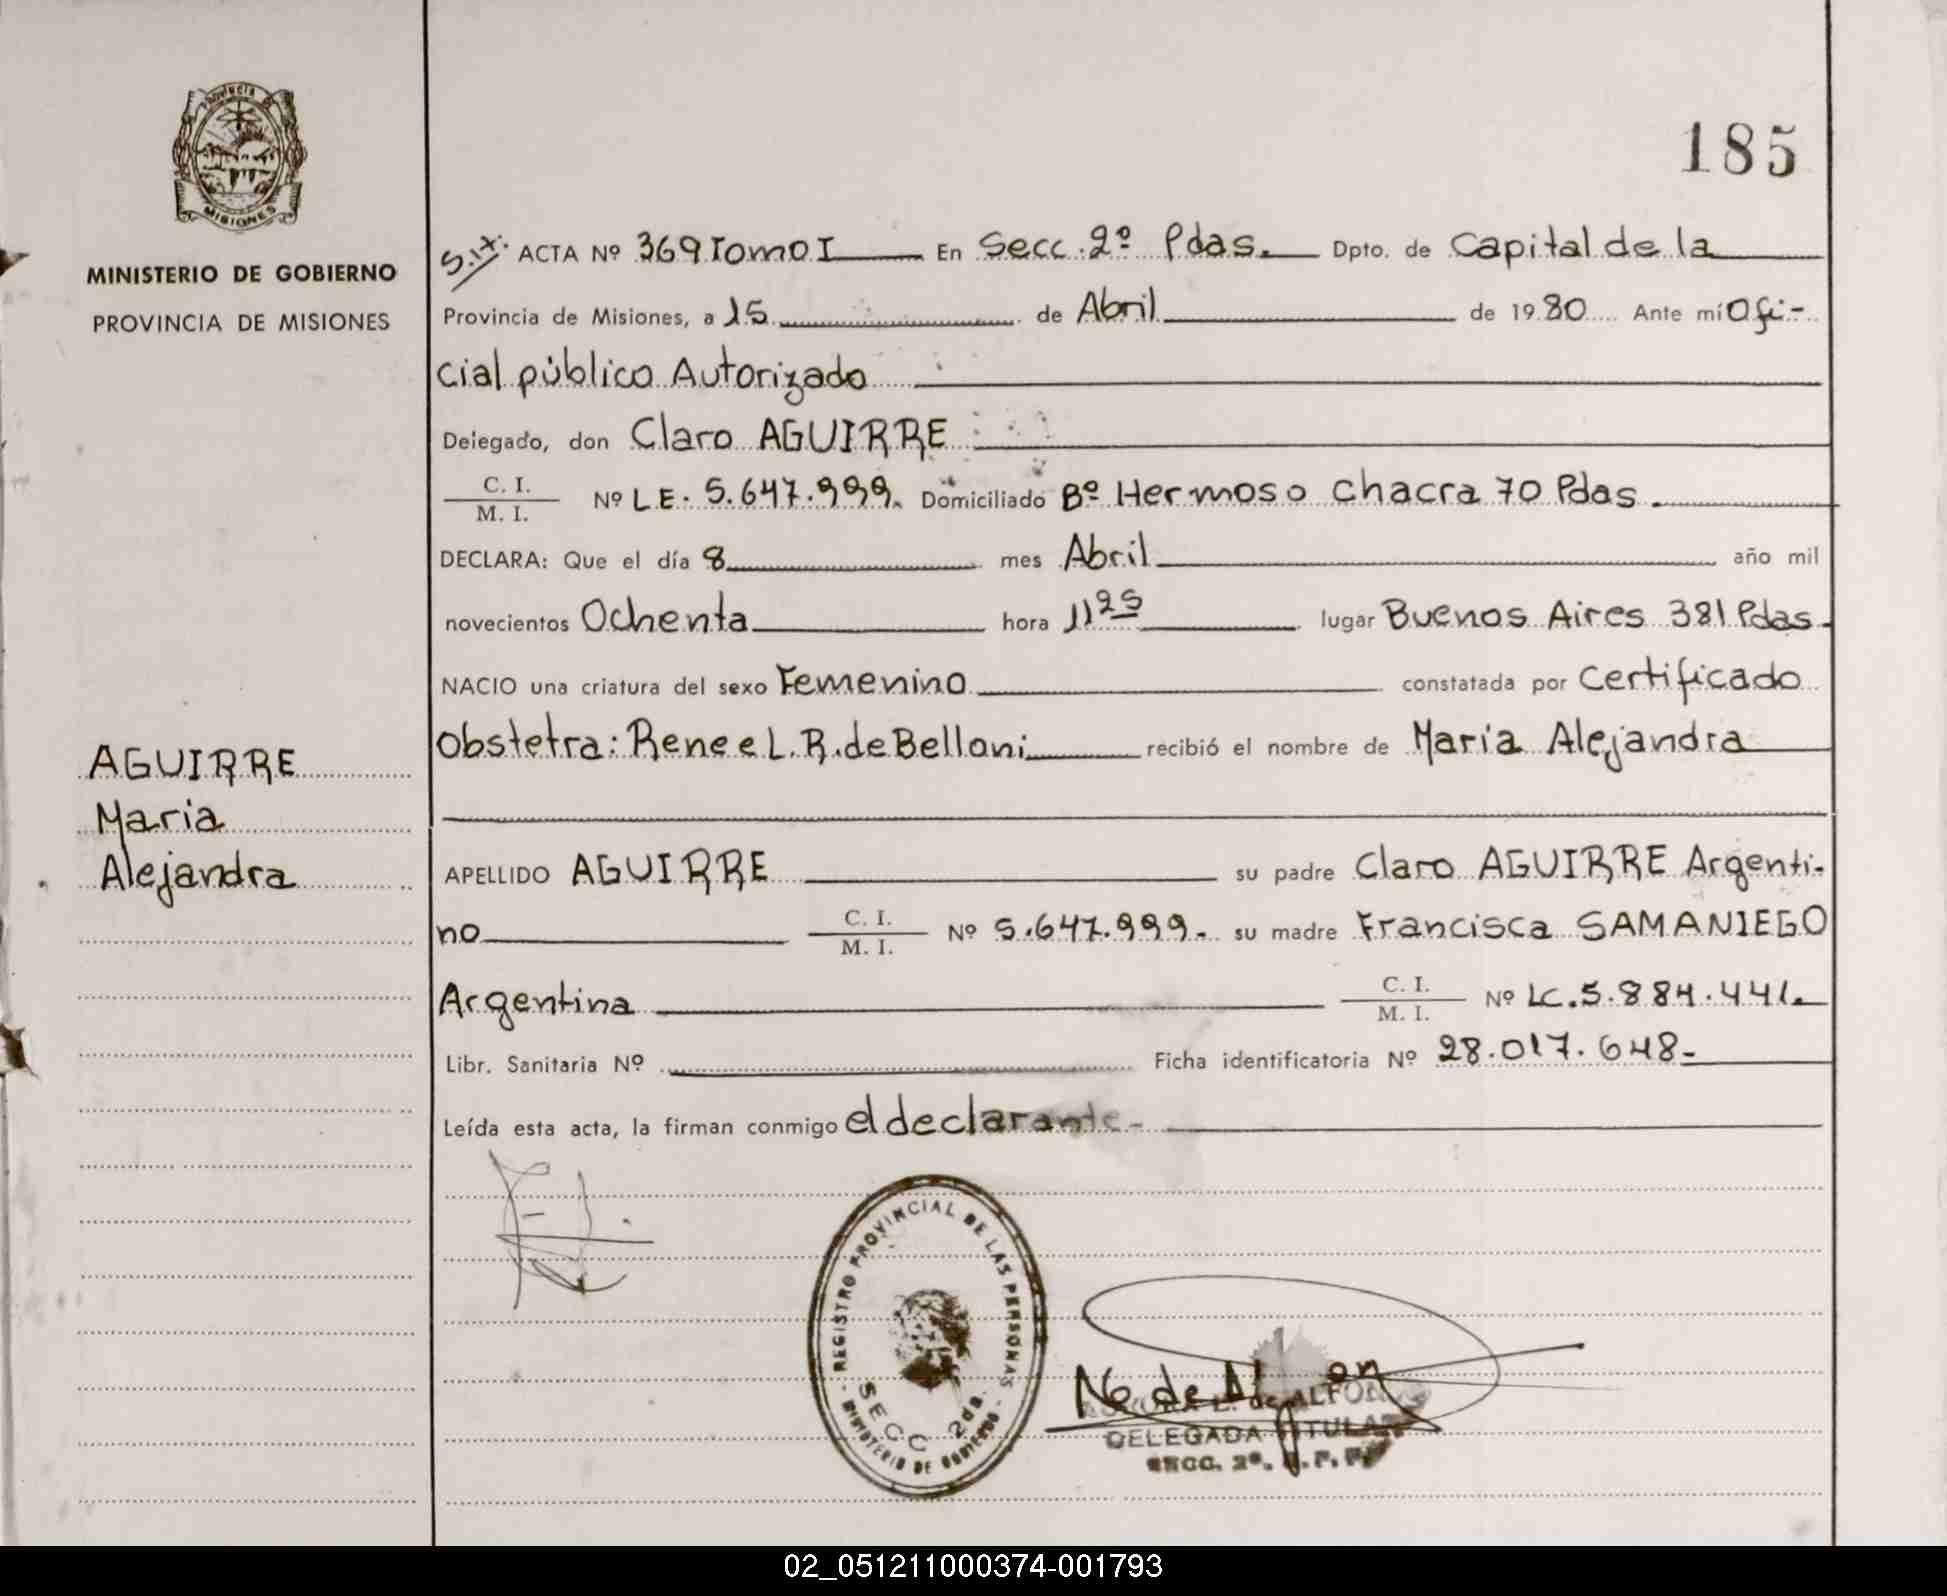 Provincia de
MISIONES
MINISTERIO DE GOBIERNO
PROVINCIA DE MISIONES
AGUIRRE
Maria
Alejandra
185
ACTA Nº 369 Tomo I En Secc. 2º Pdas. Dpto. de Capital de la
Provincia de Misiones, a 15 de Abril de 1980 Ante mí Ofi-
cial público Autorizado
Delegado, don Claro AGUIRRE
C. I.
M. I.
Nº L.E. 5.647.999. Domiciliado Bº Hermoso chacra 70 Pdas.
DECLARA: Que el día 8 mes Abril año mil
novecientos Ochenta hora 11 25 lugar Buenos Aires 381 Pdas.
NACIO una criatura del sexo Femenino constatada por Certificado
Obstetra: Renee L. R. de Belloni recibió el nombre de Maria Alejandra
APELLIDO AGUIRRE su padre Claro AGUIRRE Argenti-
no C. I. M. I. Nº 5.647.999. su madre Francisca SAMANIEGO
Argentina C. I. M. I. Nº LC. 5.884.441.
Libr. Sanitaria Nº Ficha identificatoria Nº 28.017.648-
Leída esta acta, la firman conmigo el declarante-
REGISTRO PROVINCIAL DE LAS PERSONAS
SECC 2da.
MINISTERIO DE GOBIERNO
DELEGADA TITULAR
SECC. 2ª.
02_051211000374-001793